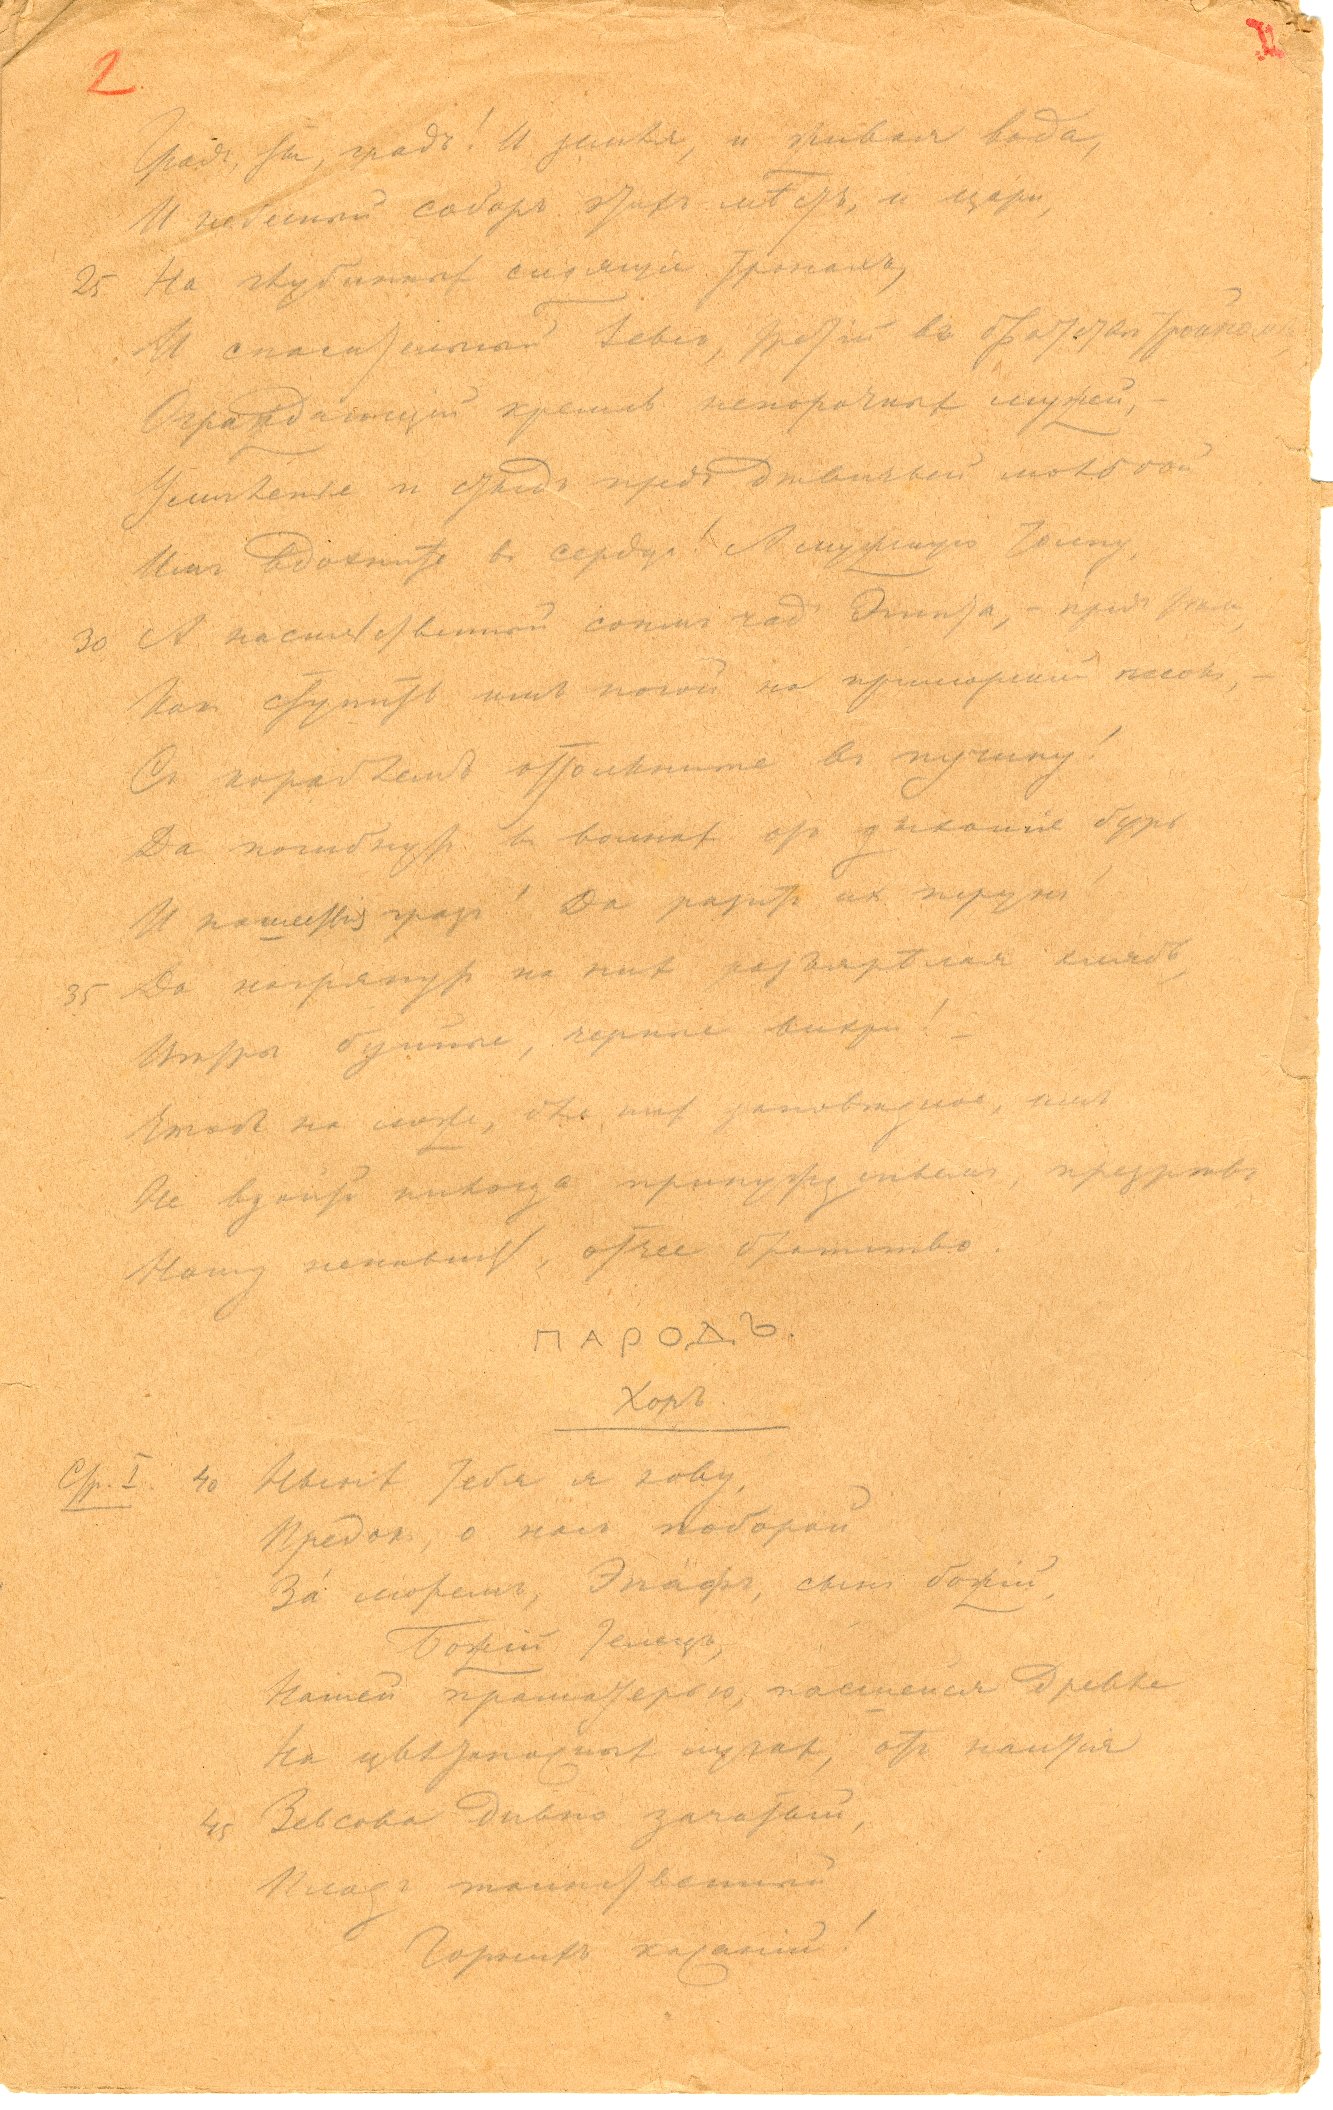 2
Градъ, ты, градъ! И земля, и живая вода,
И небесный соборъ этихъ мѣстъ, и цари,
25 На глубинныхъ сидящіе тронахъ,
И спасительный Зевсъ, третій въ
Ограждающій кремль непорочныхъ мужей, –
Умиленье и стыдъ предъ дѣвичьей мольбой
Имъ вдохните въ сердца! А мужскую толпу,
30 А насильственный сонмъ чадъ Эгипта, – предъ тѣмъ,
Какъ ступить имъ ногой на приморскій песокъ, –
Съ кораблемъ оттолкните въ пучину!
Да погибнутъ въ волнахъ отъ дыханія бурь
И градъ! Да разитъ ихъ перунъ!
35 Да нагрянутъ на нихъ разъярѣлая хлябь,
Вѣтры буйные, черные вихри! –
Чтобъ на ложе, заповѣдное, имъ
Не взойти никогда принужденьемъ, презрѣвъ
Нашу ненависть, отчее братство.
ПАРОДЪ.
Хоръ
Стр. I. 40 Нынѣ тебя я зову,
Предокъ, о насъ поборай
За́ моремъ, Эпафъ, сынъ божій,
Божій телецъ,
Нашей праматерью, пасшейся древле
На цвѣтоносныхъ лугахъ, отъ наитія
45 Зевсова дивно зачатый,
Плодъ таинственный
Горнихъ касаній!